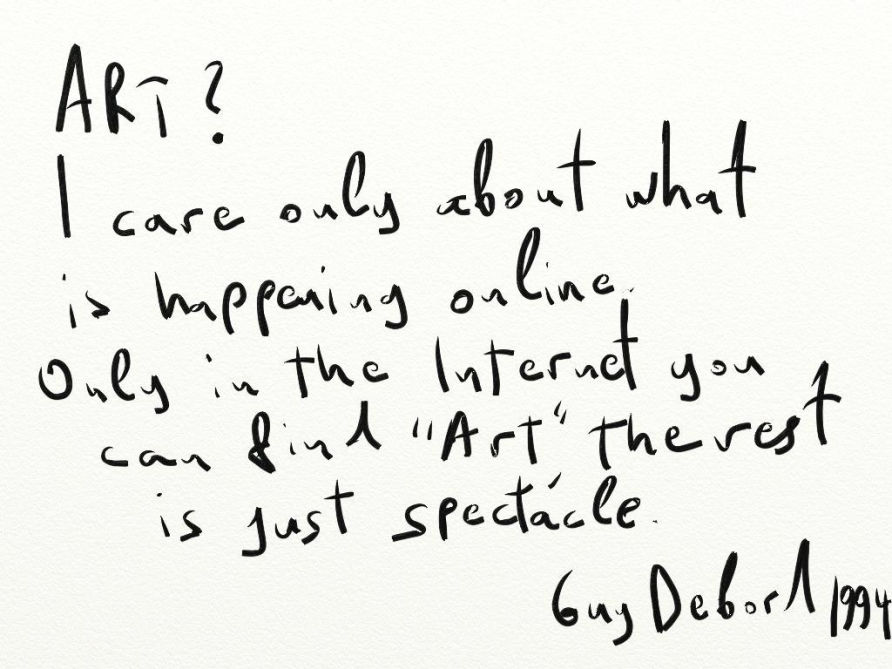 ART?
I care only about what
is happening online.
Only in the Internet you
can find "Art" the rest
is just spectacle.
Guy Debord 1994